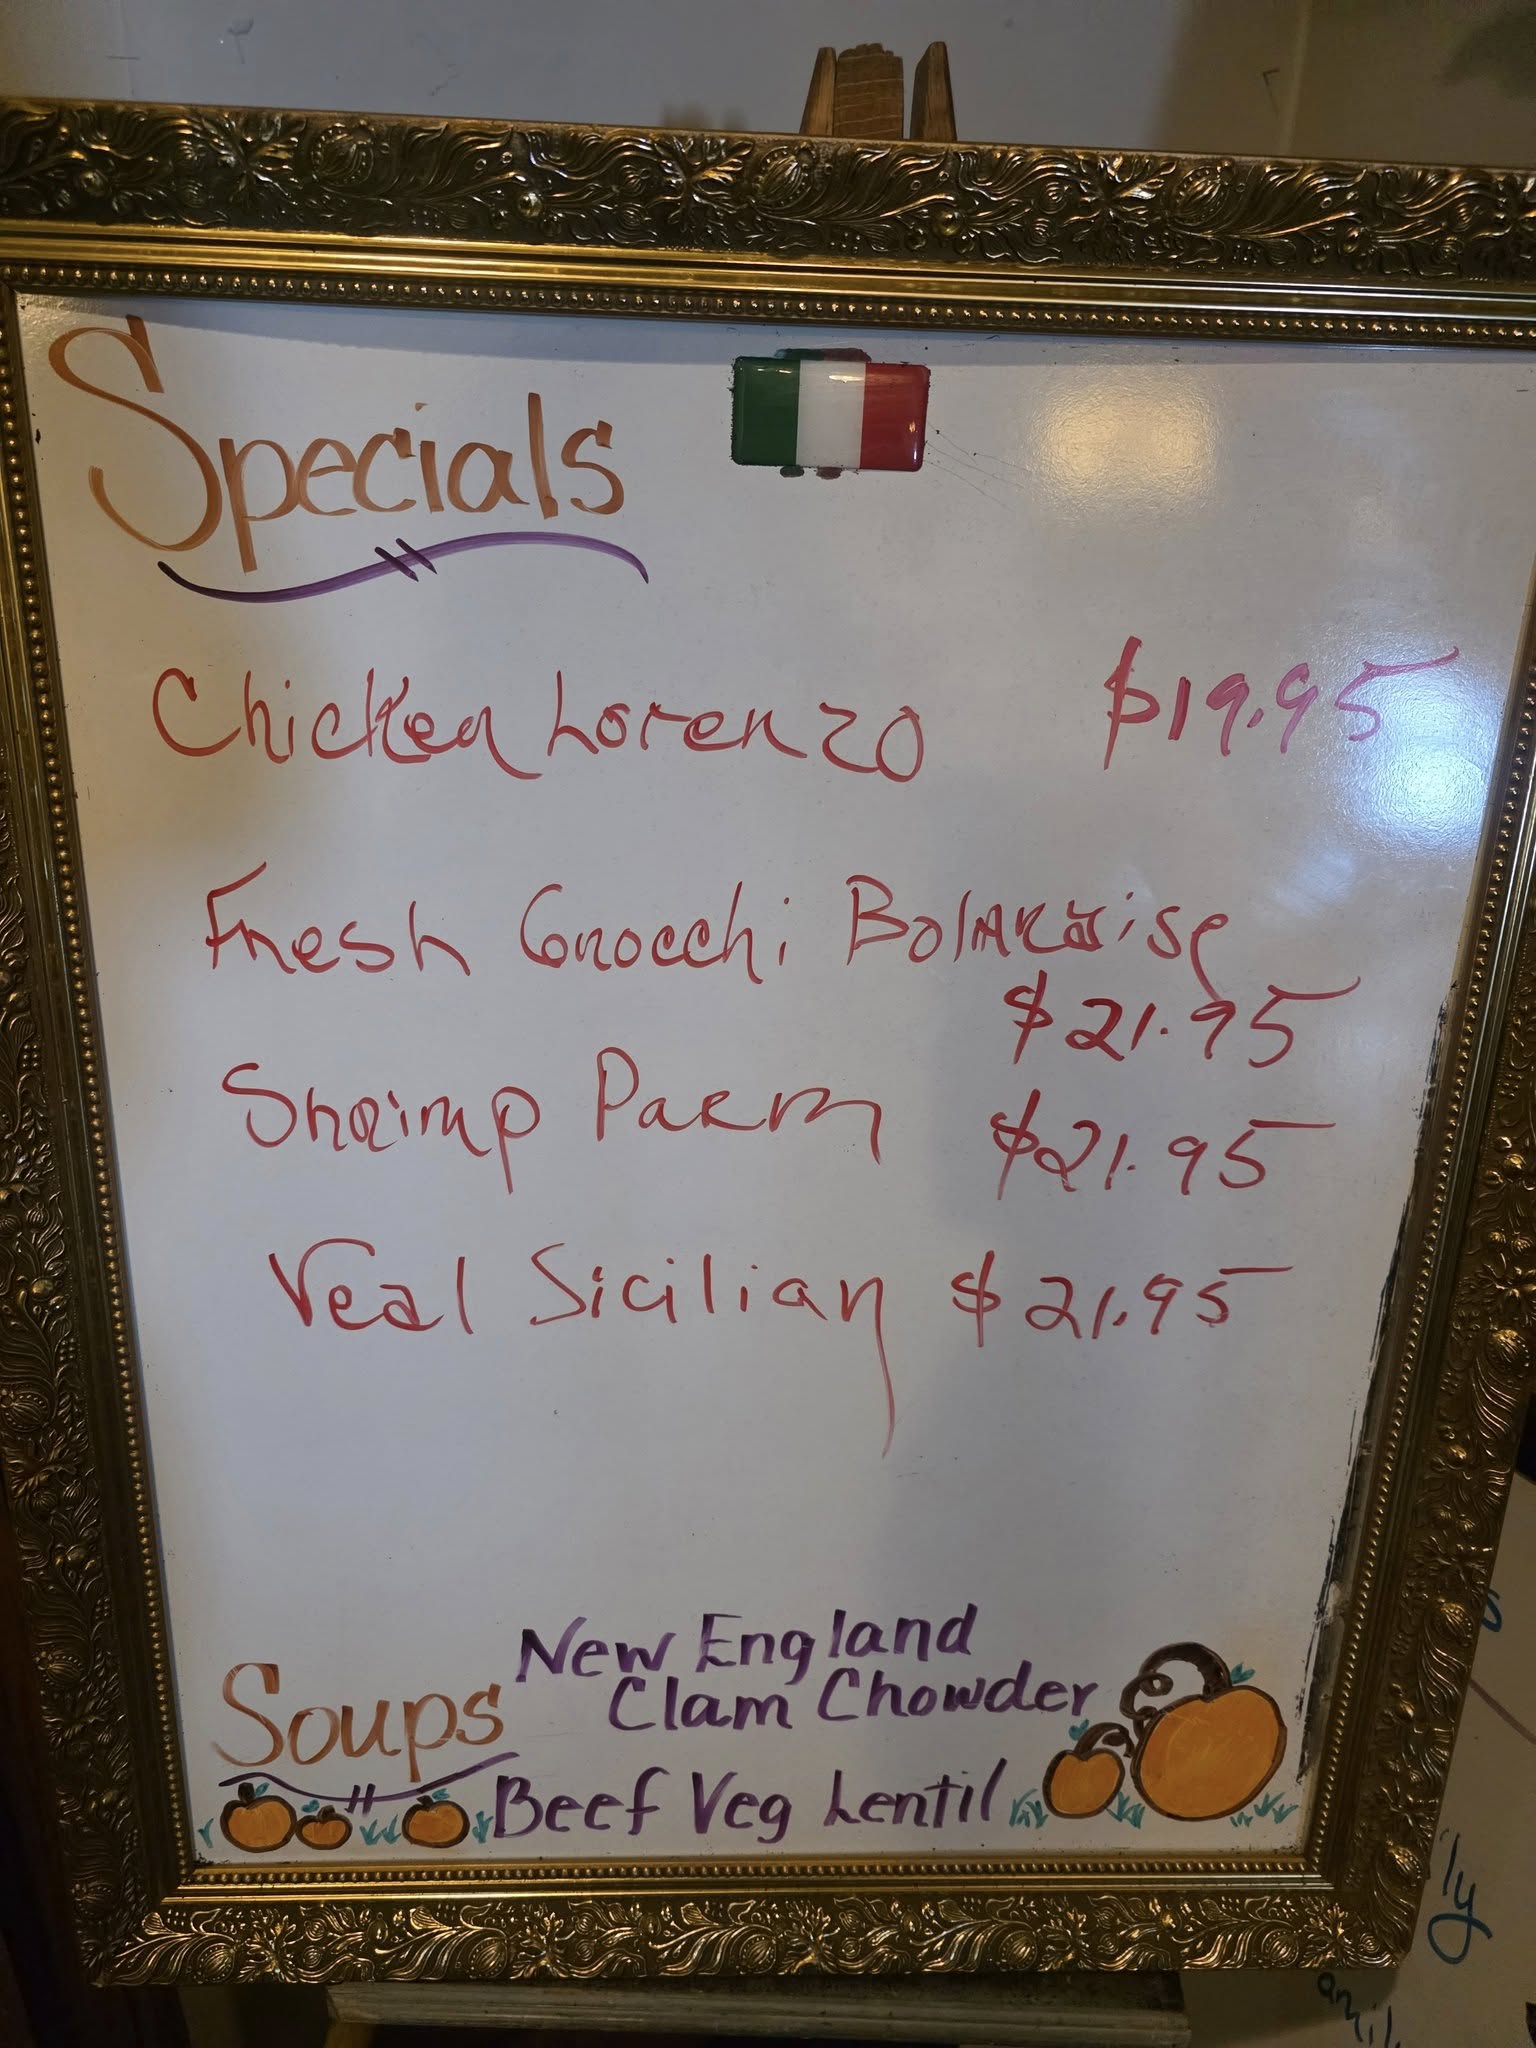 Specials
Chicken Lorenzo $19.95
Fresh Gnocchi
$21.95
Shrimp Parm $21.95
Veal Sicilian $21.95
Soups
New England
Clam Chowder
Beef Veg Lentil
ily